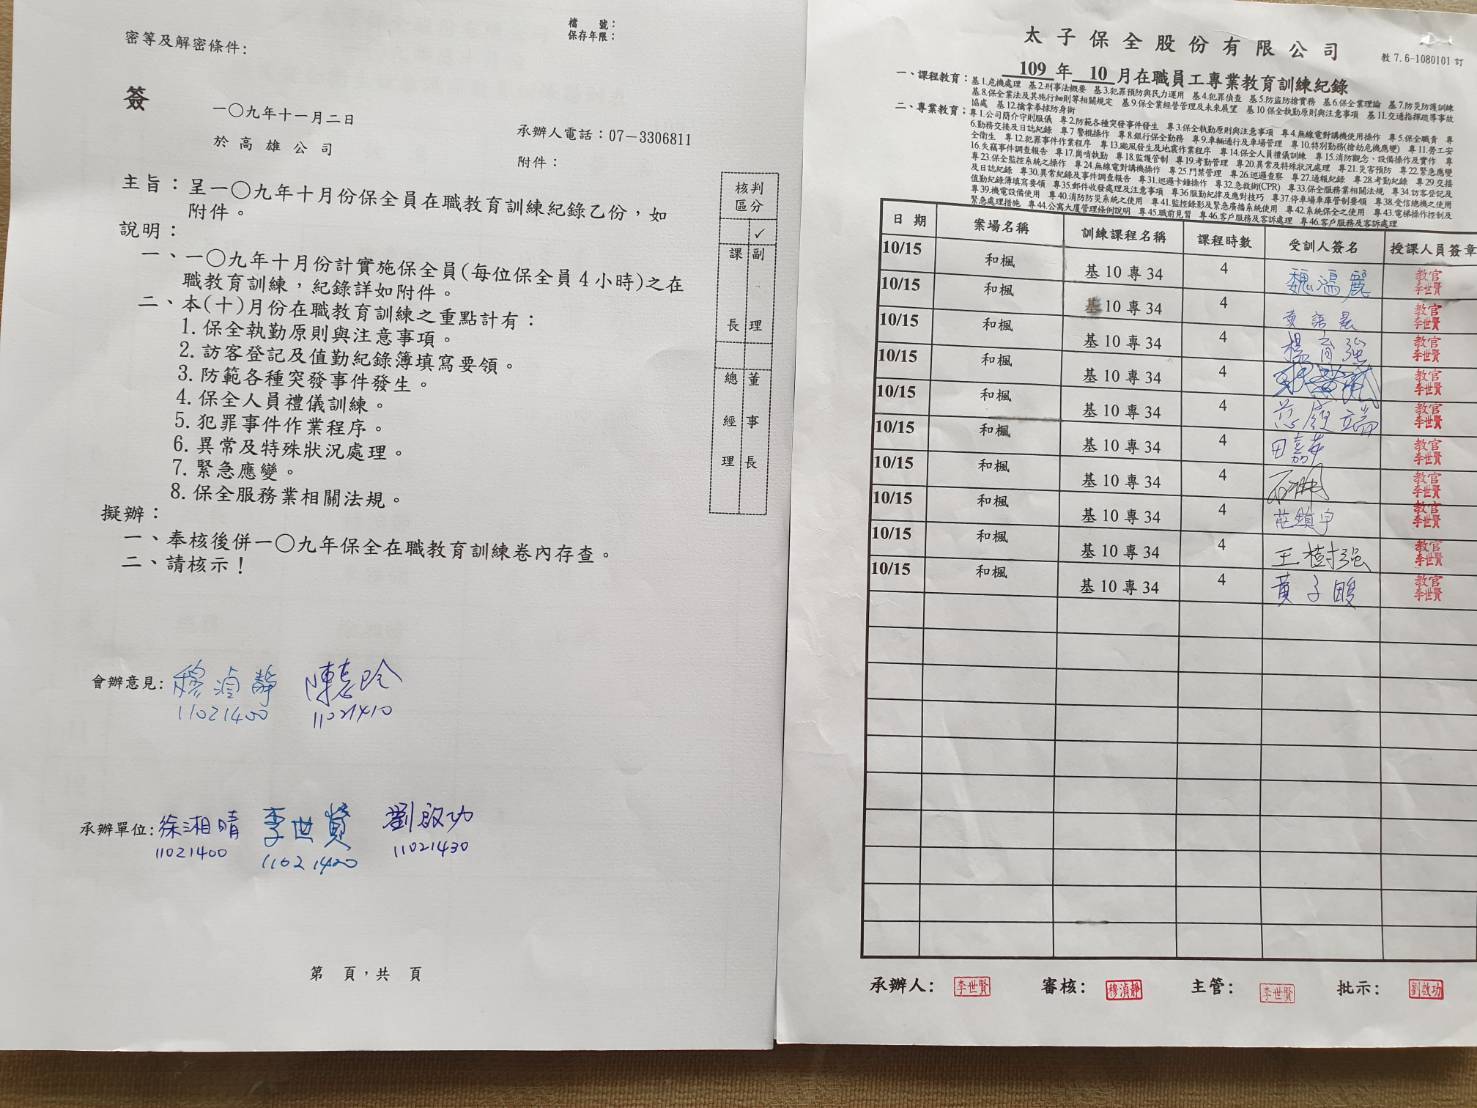 檔　號：
保存年限：
密等及解密條件：
簽
一〇九年十一月二日
於高雄公司
承辦人電話：07－3306811
附件：
主旨：呈一〇九年十月份保全員在職教育訓練紀錄乙份，如
附件。
說明：
一、一〇九年十月份計實施保全員(每位保全員4小時)之在
職教育訓練，紀錄詳如附件。
二、本(十)月份在職教育訓練之重點計有：
1.保全執勤原則與注意事項。
2.訪客登記及值勤紀錄簿填寫要領。
3.防範各種突發事件發生。
4.保全人員禮儀訓練。
5.犯罪事件作業程序。
6.異常及特殊狀況處理。
7.緊急應變。
8.保全服務業相關法規。
擬辦：
一、奉核後併一〇九年保全在職教育訓練卷內存查。
二、請核示！
核判
區分
✓
課長
副理
總經理
董事長
會辦意見：穆湞靜 陳
11021400 11021410
承辦單位：徐湘晴 李世賢 劉啟功
11021400 11021420 11021430
第　頁，共　頁
太子保全股份有限公司
教7.6-1080101訂
109年10月在職員工專業教育訓練紀錄
一、課程教育：基1.危機處理 基2.刑事法概要 基3.犯罪預防與民力運用 基4.犯罪偵查 基5.防盜防搶實務 基6.保全業理論 基7.防災防護訓練
基8.保全業法及其施行細則等相關規定 基9.保全業經營管理及未來展望 基10保全執勤原則與注意事項 基11.交通指揮疏導事故
協處 基12.擒拿拳棒防身術
二、專業教育：專1.公司簡介守則服儀 專2.防範各種突發事件發生 專3.保全執勤原則與注意事項 專4.無線電對講機使用操作 專5.保全職責 專
6.勤務交接及日誌紀錄 專7警棍操作 專8.銀行保全勤務 專9.車輛通行及車場管理 專10.特別勤務(搶劫危機應變) 專11.勞工安
全衛生 專12.犯罪事件作業程序 專13.颱風發生及地震作業程序 專14.保全人員禮儀訓練 專15.消防觀念、設備操作及實作 專
16.失竊事件調查報告 專17.崗哨執勤 專18.監護管制 專19.考勤管理 專20.異常及特殊狀況處理 專21.災害預防 專22.緊急應變
專23.保全監控系統之操作 專24.無線電對講機操作 專25.門禁管理 專26.巡邏查察 專27.通報紀錄 專28.考勤紀錄 專29.交接
及日誌紀錄 專30.異常紀錄及事件調查報告 專31.巡邏卡鐘操作 專32.急救術(CPR) 專33.保全服務業相關法規 專34.訪客登記及
值勤紀錄簿填寫要領 專35.郵件收發處理及注意事項 專36.服勤紀律及應對技巧 專37.停車場車庫管制要領 專38.受信總機之使用
專39.機電設備使用 專40.消防防災系統之使用 專41.監控錄影及緊急廣播系統使用 專42.系統保全之使用 專43.電梯操作控制及
緊急處理措施 專44.公寓大廈管理條例說明 專45.職前見習 專46.客戶服務及客訴處理 專46.客戶服務及客訴處理
日期 案場名稱 訓練課程名稱 課程時數 受訓人簽名 授課人員簽章
10/15 和楓 基10專34 4 魏溫麗 教官李世賢
10/15 和楓 基10專34 4 教官李世賢
10/15 和楓 基10專34 4 楊育強 教官李世賢
10/15 和楓 基10專34 4 教官李世賢
10/15 和楓 基10專34 4 教官李世賢
10/15 和楓 基10專34 4 田嘉華 教官李世賢
10/15 和楓 基10專34 4 教官李世賢
10/15 和楓 基10專34 4 莊鎮宇 教官李世賢
10/15 和楓 基10專34 4 王樹强 教官李世賢
10/15 和楓 基10專34 4 黃子駿 教官李世賢
承辦人：李世賢 審核：穆湞靜 主管：李世賢 批示：劉啟功